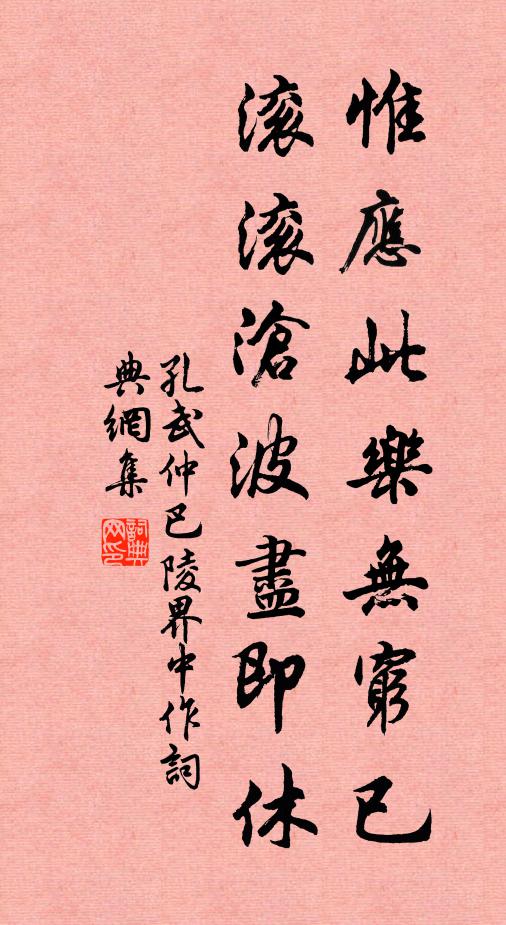 惟應此樂無窮已
滚滚滄波盡即休
孔武仲巴陵界中作詞
典網集
詞典
网印